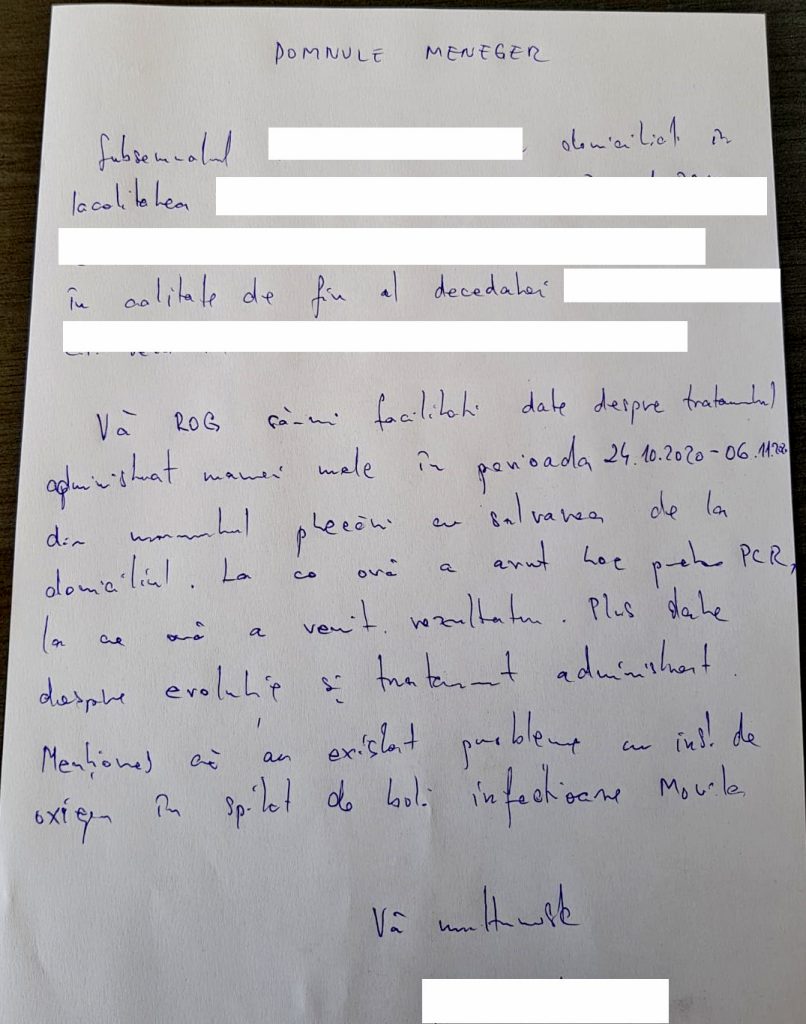 DOMNULE MENEGER
Subsemnatul domiciliat în
localitatea
în calitate de fiu al decedatei
Vă ROG să-mi facilitati date despre tratamentul
administrat mamei mele în perioada 24.10.2020-06.11.2020
din momentul plecări cu salvarea de la
domiciliul. La ce oră a avut loc proba PCR,
la ce oră a venit rezultatu. Plus date
despre evoluție și tratament administrat.
Menționez că au existat probleme cu inst. de
oxigen în spital de boli infecțioane Movila
Vă multumesk